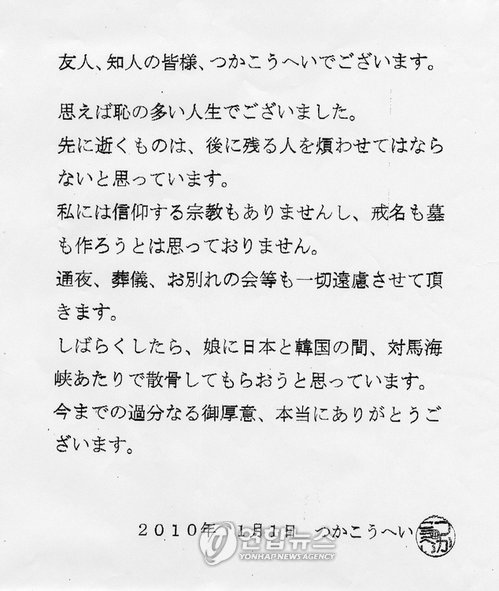 友人、知人の皆様、つかこうへいでございます。
思えば恥の多い人生でございました。
先に逝くものは、後に残る人を煩わせてはなら
ないと思っています。
私には信仰する宗教もありませんし、戒名も墓
も作ろうとは思っておりません。
通夜、葬儀、お別れの会等も一切遠慮させて頂
きます。
しばらくしたら、娘に日本と韓国の間、対馬海
峡あたりで散骨してもらおうと思っています。
今までの過分なる御厚意、本当にありがとうご
ざいます。
２０１０年　１月１日　つかこうへい
연합뉴스
YONHAP NEWS AGENCY